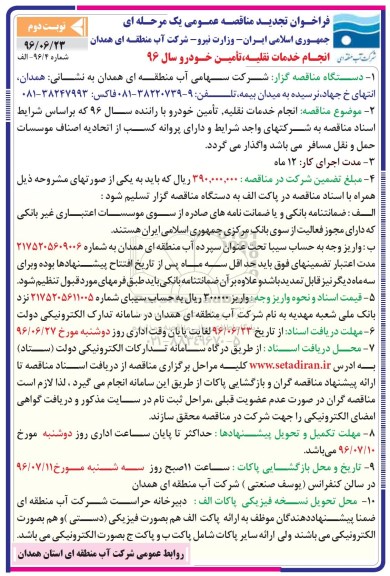 فراخوان تجدید مناقصه عمومی یک مرحله ای
جمهوری اسلامی ایران- وزارت نیرو- شرکت آب منطقه ای همدان
انجام خدمات نقلیه،تأمین خودرو سال ۹۶
نوبت دوم
۹۶/۰۶/۲۳
شماره ۹۶/۴-الف
۱- دستگاه مناقصه گزار: شرکت سهامی آب منطقه ای همدان به نشانی: همدان،
انتهای خ جهاد،نرسیده به میدان بیمه،تلفن: ۹-۳۸۲۲۰۷۳۹-۰۸۱ فاکس: ۳۸۲۴۷۹۹۳-۰۸۱
۲- موضوع مناقصه: انجام خدمات نقلیه، تأمین خودرو با راننده سال ۹۶ که براساس شرایط
اسناد مناقصه به شرکتهای واجد شرایط و دارای پروانه کسب از اتحادیه اصناف موسسات
حمل و نقل مسافر می باشد واگذار می گردد.
۳- مدت اجرای کار: ۱۲ ماه
۴- مبلغ تضمین شرکت در مناقصه : ۳۹۰,۰۰۰,۰۰۰ ریال که باید به یکی از صورتهای مشروحه ذیل
همراه با اسناد مناقصه در پاکت الف به دستگاه مناقصه گزار تسلیم شود :
الف : ضمانتنامه بانکی و یا ضمانت نامه های صادره از سوی موسسات اعتباری غیر بانکی
که دارای مجوز فعالیت از سوی بانک مرکزی جمهوری اسلامی ایران هستند.
ب : واریز وجه به حساب سیبا تحت عنوان سپرده آب منطقه ای همدان به شماره ۲۱۷۵۲۰۵۶۰۹۰۰۶
مدت اعتبار تضمینهای فوق باید حداقل سه ماه پس از تاریخ افتتاح پیشنهادها بوده وبرای
سه ماه دیگر نیز قابل تمدید باشد و علاوه بر آن ضمانتنامه بانکی باید طبق فرمهای مورد قبول تنظیم شود.
۵- قیمت اسناد و نحوه واریز وجه : واریز ۳۰۰۰۰۰ ریال به حساب سیبای شماره ۲۱۷۵۲۰۵۶۱۱۰۰۵ نزد
بانک ملی شعبه مهدیه به نام شرکت آب منطقه ای همدان در سامانه تدارک الکترونیکی دولت
۶- مهلت دریافت اسناد: از تاریخ ۹۶/۰۶/۲۳ لغایت پایان وقت اداری روز دوشنبه مورخ ۹۶/۰۶/۲۷
۷- محل دریافت اسناد : از طریق درگاه سامانه تدارکات الکترونیکی دولت (ستاد)
به ادرس www.setadiran.ir کلیه مراحل برگزاری مناقصه از دریافت اسناد مناقصه تا
ارائه پیشنهاد مناقصه گران و بازگشایی پاکات از طریق این سامانه انجام می گیرد ، لذا لازم است
مناقصه گران در صورت عدم عضویت قبلی ،مراحل ثبت نام در سایت مذکور و دریافت گواهی
امضای الکترونیکی را جهت شرکت در مناقصه محقق سازند.
۸- مهلت تکمیل و تحویل پیشنهادها : حداکثر تا پایان ساعت اداری روز دوشنبه مورخ
۹۶/۰۷/۱۰ می‌باشد.
۹- تاریخ و محل بازگشایی پاکات : ساعت ۱۱ صبح روز سه شنبه مورخ ۹۶/۰۷/۱۱
در سالن کنفرانس (یوسف صنعتی ) شرکت آب منطقه ای همدان
۱۰- محل تحویل نسخه فیزیکی پاکات الف : دبیرخانه حراست شرکت آب منطقه ای
ضمنا پیشنهاددهندگان موظف به ارائه پاکت الف هم بصورت فیزیکی (دستی )و هم بصورت
الکترونیکی می باشند ولی ارائه سایر پاکات شامل پاکت ب و پاکت ج بصورت الکترونیکی می باشند.
روابط عمومی شرکت آب منطقه ای استان همدان